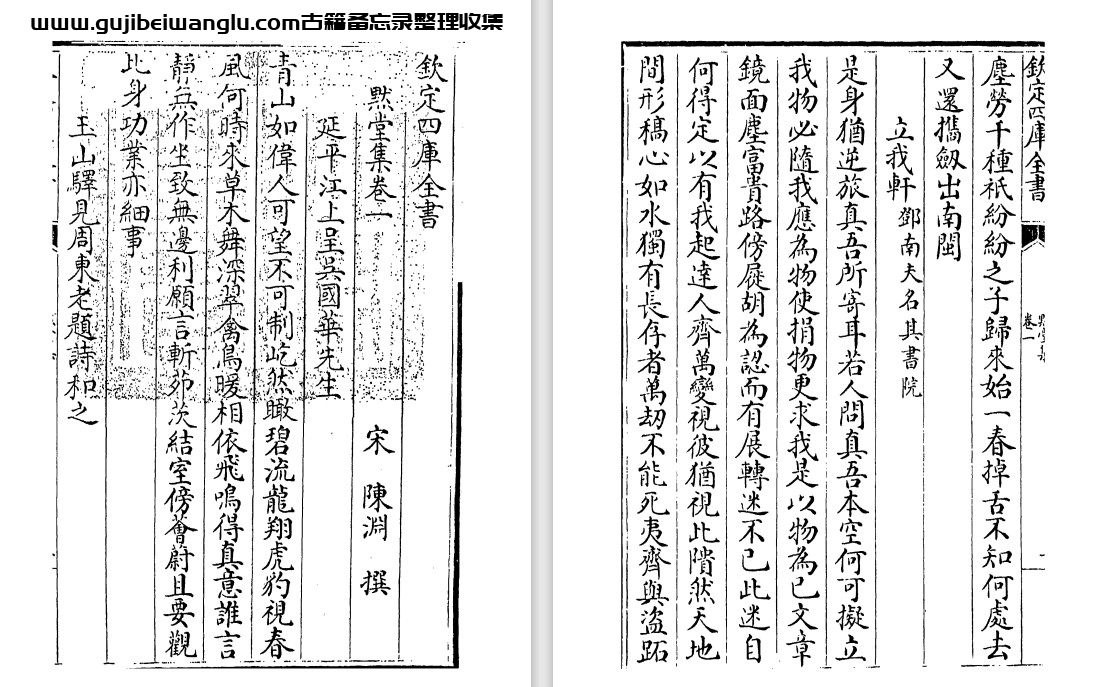 www.gujibeiwanglu.com古籍备忘录整理收集
欽定四庫全書
默堂集卷一 宋 陳淵 撰
延平江上呈吳國華先生
青山如偉人可望不可制屹然瞰碧流龍翔虎豹視春
風何時來草木舞深翠禽鳥暖相依飛鳴得真意誰言
靜無作坐致無邊利願言斬茆茨結室傍薈蔚且要觀
此身功業亦細事
王山驛見周東老題詩和之
欽定四庫全書 卷一
塵勞千種祇紛紛之子歸來始一春掉舌不知何處去
又還攜劔出南閩
立我軒 鄧南夫名其書院
是身猶逆旅真吾所寄耳若人問真吾本空何可擬立
我物必隨我應為物使捐物更求我是以物為已文章
鏡面塵富貴路傍屣胡為認而有展轉迷不已此迷自
何得定以有我起達人齊萬變視彼猶視此隤然天地
間形稿心如水獨有長存者萬劫不能死夷齊與盜跖